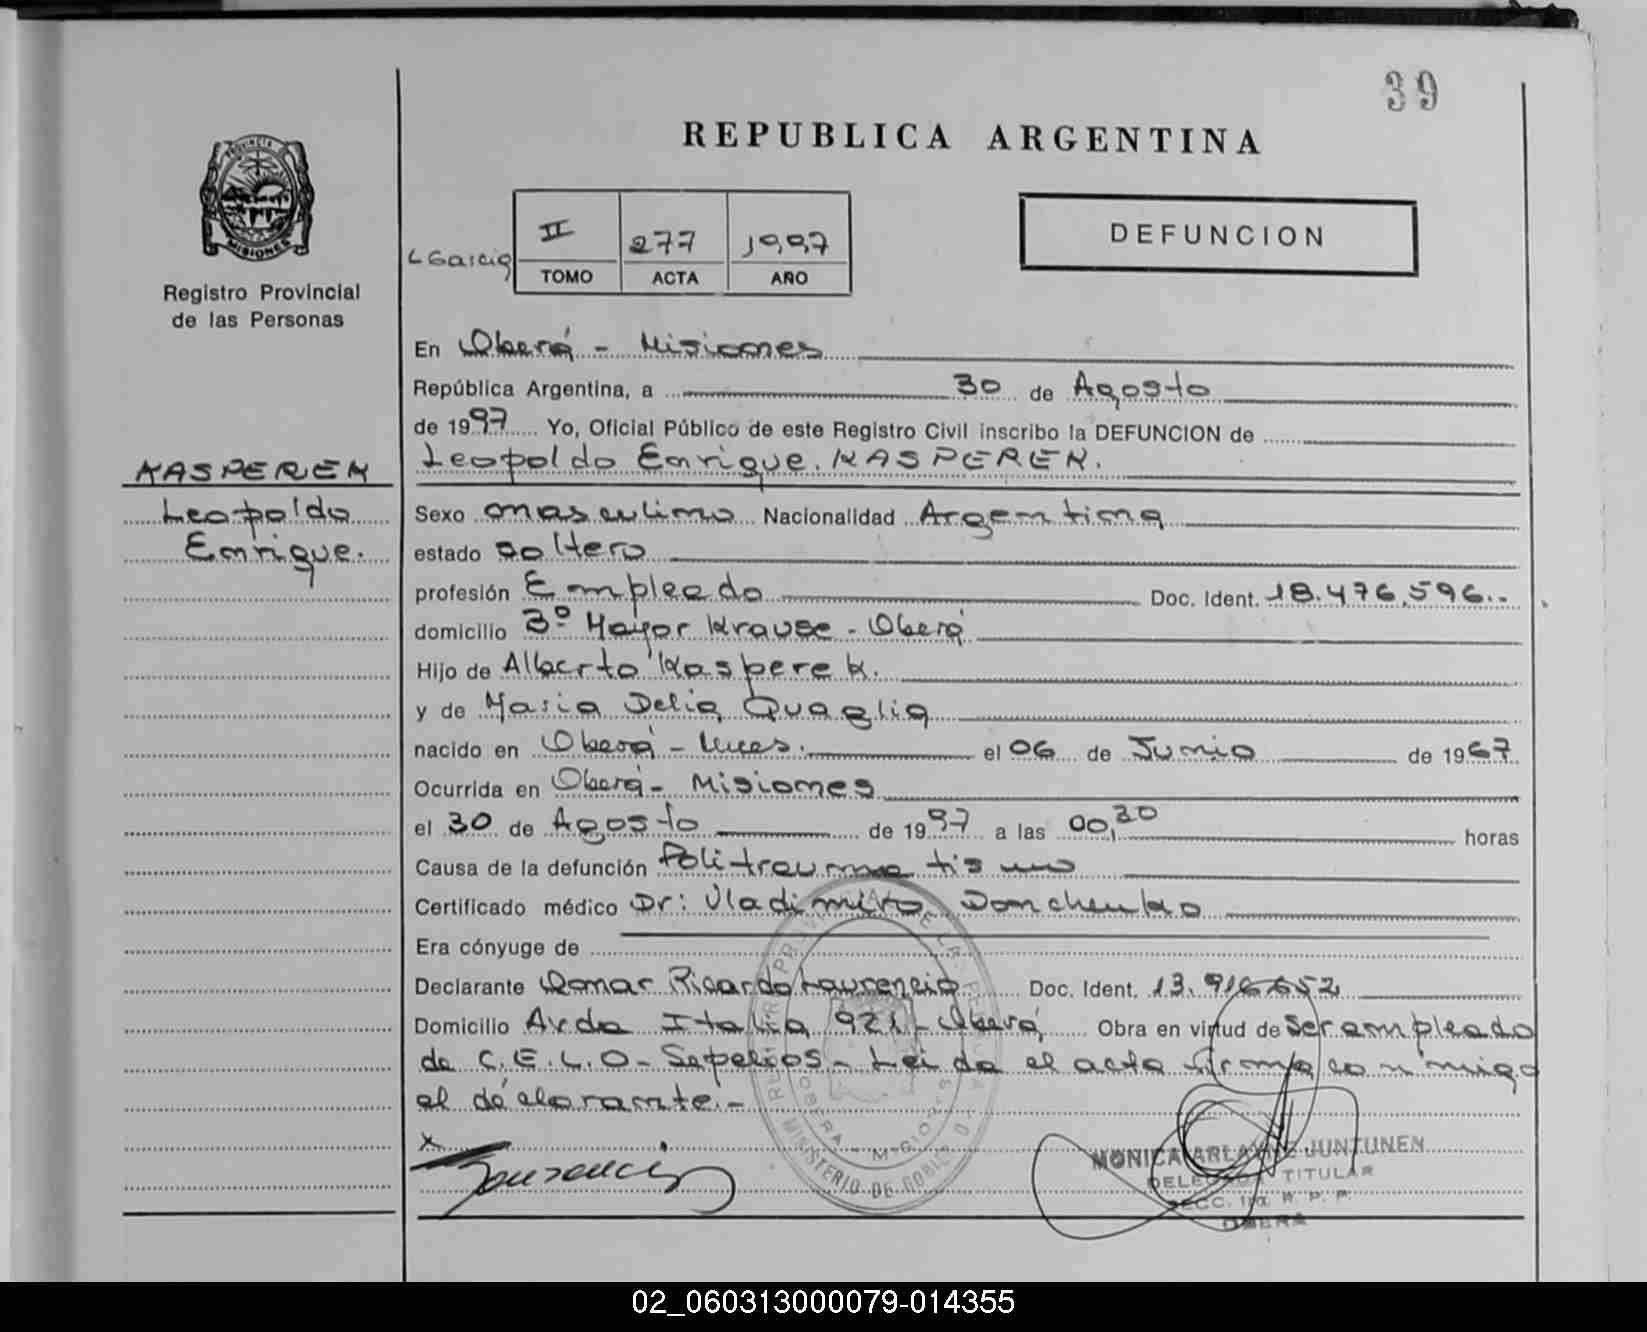 39
REPUBLICA ARGENTINA
PROVINCIA
MISIONES
Registro Provincial
de las Personas
LGarcia
II 277 1997
TOMO ACTA AÑO
DEFUNCION
En Oberá - Misiones
República Argentina, a 30 de Agosto
de 1997 Yo, Oficial Público de este Registro Civil inscribo la DEFUNCION de
Leopoldo Enrique. KASPEREK.
KASPEREK
Leopoldo
Enrique.
Sexo masculino Nacionalidad Argentina
estado soltero
profesión Empleado Doc. Ident. 18.476.596
domicilio 3º Mayor Krause - Oberá
Hijo de Alberto Kasperek.
y de Maria Delia Quaglia
nacido en Oberá - el 06 de Junio de 1967
Ocurrida en Oberá - Misiones
el 30 de Agosto de 1997 a las 00,30 horas
Causa de la defunción Politraumatismo
Certificado médico Dr: Vladimiro Donchenko
Era cónyuge de
Declarante Omar Ricardo Laurencio Doc. Ident. 13.916.652
Domicilio Avda Italia 921 - Oberá Obra en virtud de ser empleado
de C.E.L.O - Sepelios - Leida el acta firma conmigo
el declarante.-
x Laurencio
MINISTERIO DE GOBIERNO
OBERA - MISIONES
MONICA ARLAYNE JUNTUNEN
DELEGADA TITULAR
SECC. 1ra R. P. P.
OBERA
02_060313000079-014355